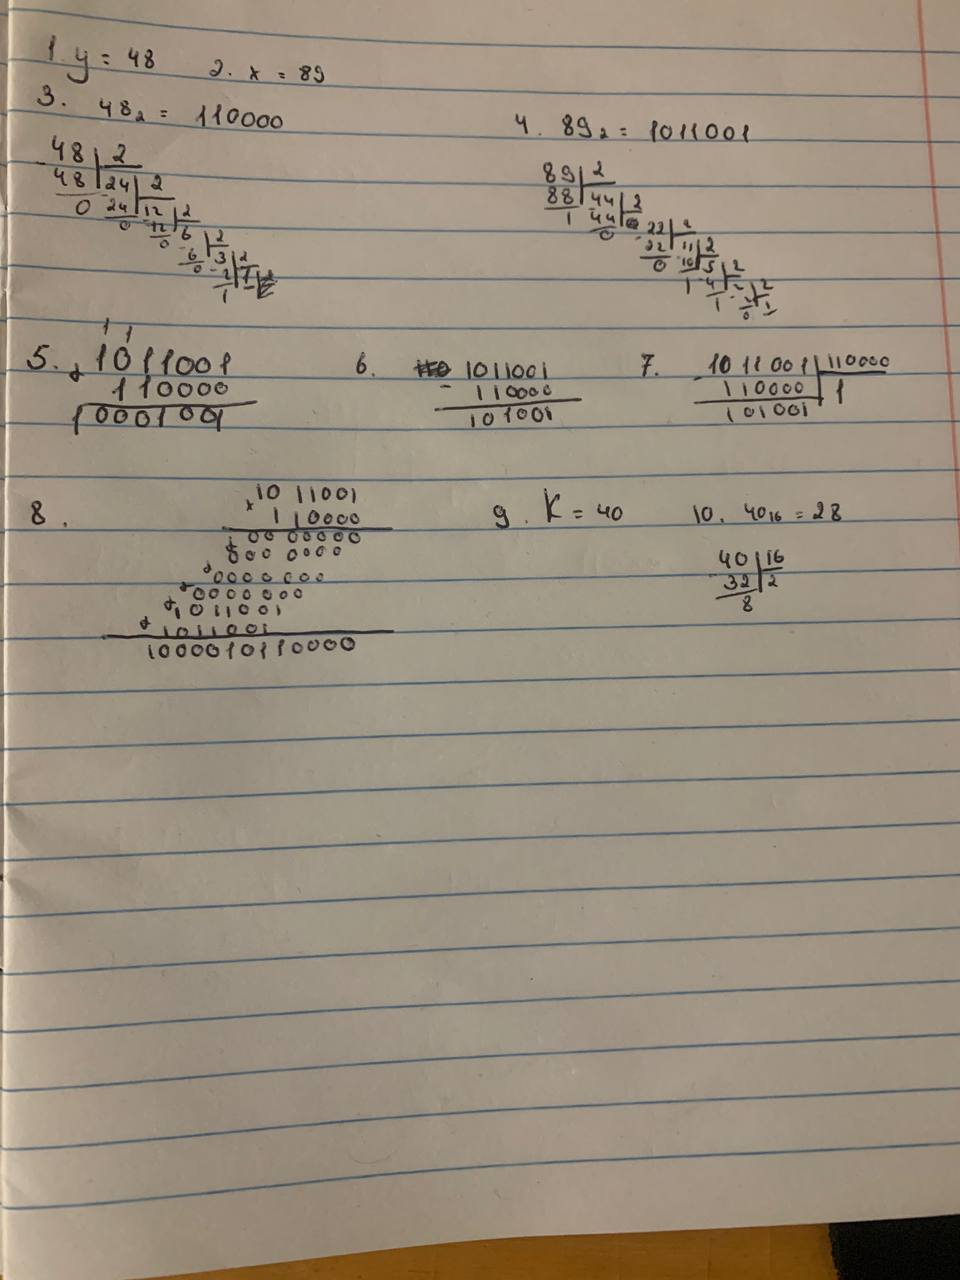 1. y = 48 2. x = 89
3. 48₂ = 110000
4. 89₂ = 1011001
48 2
48 24 2
0 24 12 2
0 12 6 2
0 6 3 2
0 2 1
1
89 2
88 44 2
1 44 22 2
0 22 11 2
0 10 5 2
1 4 2 2
1 2 1
0
1 1
5. + 1011001
110000
10001001
6. 1011001
- 110000
101001
7. 1011001 110000
- 110000 1
101001
8. 1011001
x 110000
0000000
+ 0000000
+ 0000000
+ 0000000
+ 1011001
+ 1011001
1000010110000
9. K = 40
10. 40₁₆ = 28
40 16
32 2
8